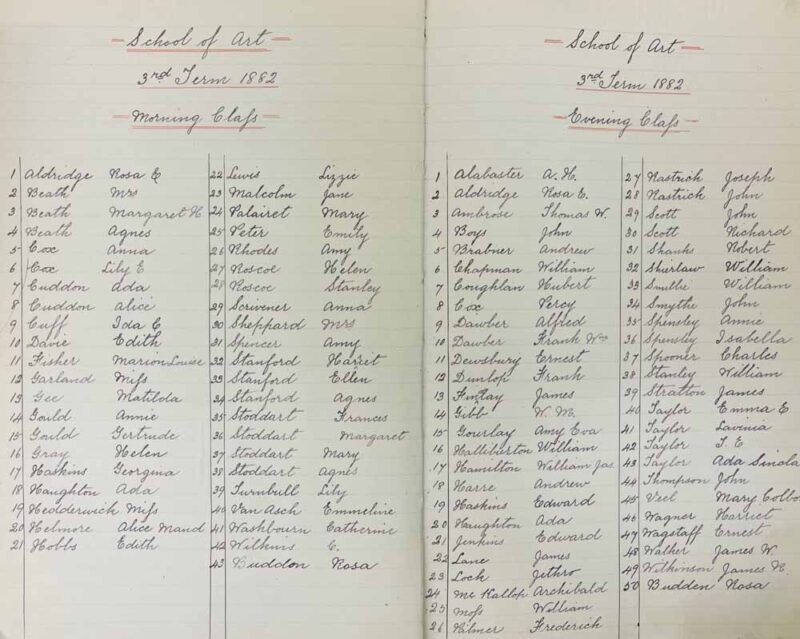 School of Art
3rd Term 1882
Morning Class
1 Aldridge Rosa E
2 Beath Mrs
3 Beath Margaret H
4 Beath Agnes
5 Cox Anna
6 Cox Lily E
7 Cuddon Ada
8 Cuddon Alice
9 Cuff Ida C
10 Davie Edith
11 Fisher Marion Louise
12 Garland Miss
13 Gee Matilda
14 Gould Annie
15 Gould Gertrude
16 Gray Helen
17 Haskins Georgina
18 Haughton Ada
19 Hedderwick Miss
20 Helmore Alice Maud
21 Hobbs Edith
22 Lewis Lizzie
23 Malcolm Jane
24 Palairet Mary
25 Peter Emily
26 Rhodes Amy
27 Roscoe Helen
28 Roscoe Stanley
29 Scrivener Anna
30 Sheppard Mrs
31 Spencer Amy
32 Stanford Harriet
33 Stanford Ellen
34 Stanford Agnes
35 Stoddart Frances
36 Stoddart Margaret
37 Stoddart Mary
38 Stoddart Agnes
39 Turnbull Lily
40 Van Asch Emmeline
41 Washbourn Catherine
42 Wilkins C.
43 Buddon Rosa
School of Art
3rd Term 1882
Evening Class
1 Alabaster A. H.
2 Aldridge Rosa E.
3 Ambrose Thomas W.
4 Boys John
5 Brabner Andrew
6 Chapman William
7 Coughlan Hubert
8 Cox Percy
9 Dawber Alfred
10 Dawber Frank Wm
11 Dewsbury Ernest
12 Dunlop Frank
13 Finlay James
14 Gibb W. M.
15 Gourlay Amy Eva
16 Halliburton William
17 Hamilton William Jas.
18 Harre Andrew
19 Haskins Edward
20 Haughton Ada
21 Jenkins Edward
22 Lane James
23 Lock Jethro
24 Mc Kallop Archibald
25 Moss William
26 Palmer Frederick
27 Rastrick Joseph
28 Rastrick John
29 Scott John
30 Scott Richard
31 Shanks Robert
32 Shurlaw William
33 Smellie William
34 Smythe John
35 Spensley Annie
36 Spensley Isabella
37 Spooner Charles
38 Stanley William
39 Stratton James
40 Taylor Emma E
41 Taylor Lavinia
42 Taylor T. E
43 Taylor Ada
44 Thompson John
45 Veel Mary
46 Wagner Harriet
47 Wagstaff Ernest
48 Walker James W.
49 Wilkinson James H.
50 Budden Rosa